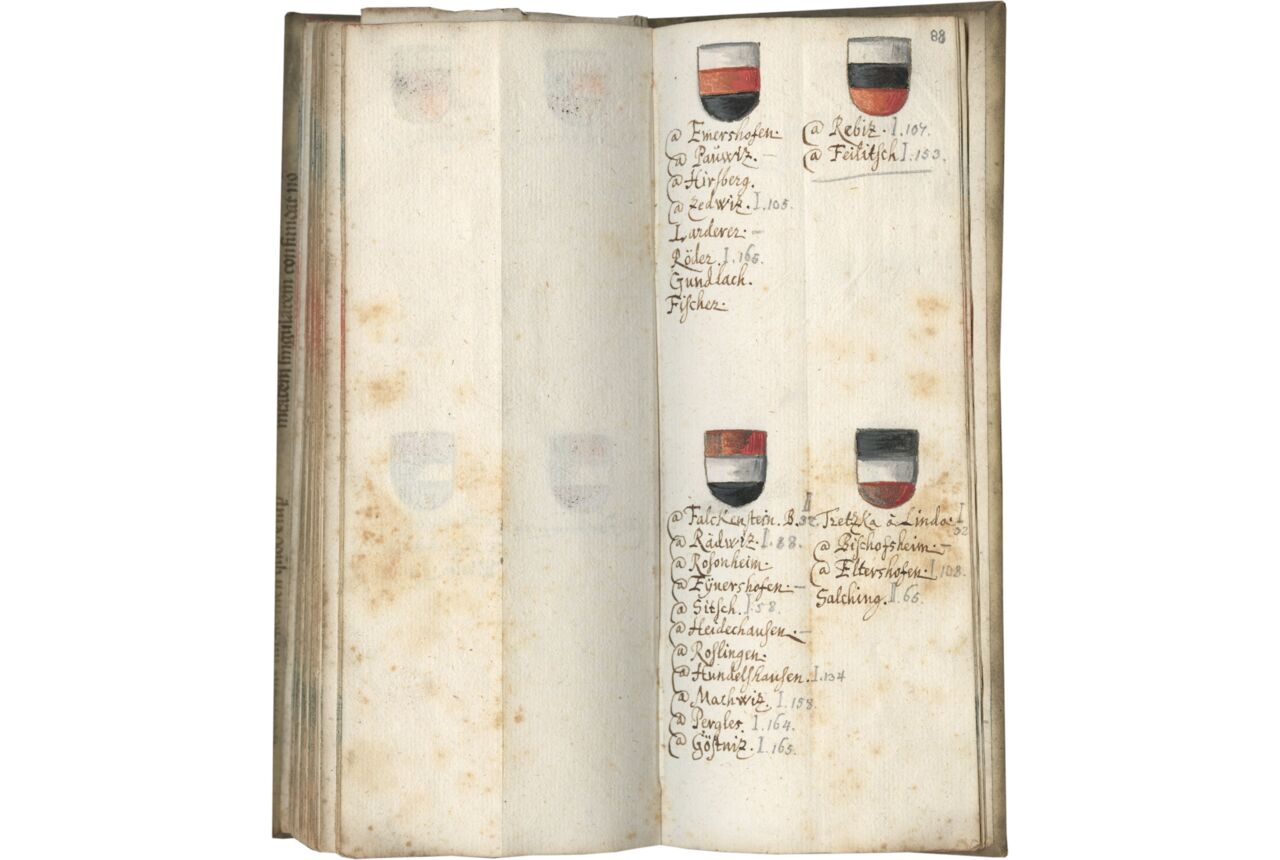 88
@ Emershofen.
@ Pauwiz. –
@ Hirsberg.
@ Zedwiz. I.105.
Larderer. –
Röder. I.165.
Gundlach.
Fischer.
@ Rebiz. I.107.
@ Feilitsch I.153.
@ Falckenstein. B. II 32.
@ Rädwiz. I.88.
@ Rosonheim.
@ Eÿnershofen. –
@ Sitsch. I.58.
@ Heidechausen. –
@ Roslingen.
@ Hundelshausen. I.134
@ Machwiz. I.158.
@ Pergles. I.164.
@ Göstniz. I.165.
Tretzka à Linda. I 32
@ Bischofsheim. –
@ Eltershofen. I.108.
Salching. II.65.